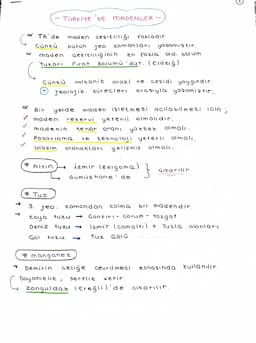 - TÜRKİYE'DE MADENLER -
TR'de maden çeşitliliği fazladır.
Çünkü bütün jeo. zamanları yaşamıştır.
maden çeşitliliğinin en fazla old. bölüm
Yukarı Fırat Bölümü'dür. (Elazığ)
Çünkü volkanik arazi ve çeşidi yaygındır.
jeolojik süreçleri sırasıyla yaşamıştır.
Bir yerde maden işletmesi açılabilmesi için;
maden rezervi yeterli olmalıdır.
madenin tenör oranı yüksek olmalı.
Pazarlama ve teknoloji yeterli olmalı,
ulaşım olanakları gelişmiş olmalı.
* Altın → İzmir (Bergama)
→ Gümüşhane'de } çıkarılır
* Tuz
→ 3. jeo. zamandan kalma bir madendir.
→ Kaya tuzu → Çankırı - Çorum - Yozgat
Deniz tuzu → İzmir (Çamaltı) + Tuzla alanları
Göl tuzu → Tuz Gölü
* manganez
→ Demirin çeliğe çevrilmesi esnasında kullanılır.
Dayanıklılık, sertlik verir.
Zonguldak (Ereğli)'de çıkarılır.